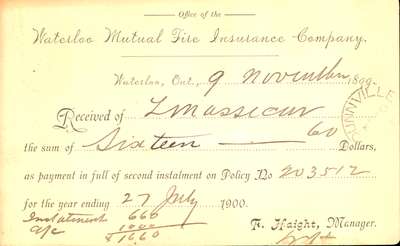 Office of the
Waterloo Mutual Fire Insurance Company.
Waterloo, Ont., 9 November 1899
Received of L Massecar
the sum of Sixteen 60 Dollars,
as payment in full of second instalment on Policy No 203512
for the year ending 27 July 1900.
Instalment 660
a/c 1000
$1660
F. Haight, Manager.
DUNNVILLE